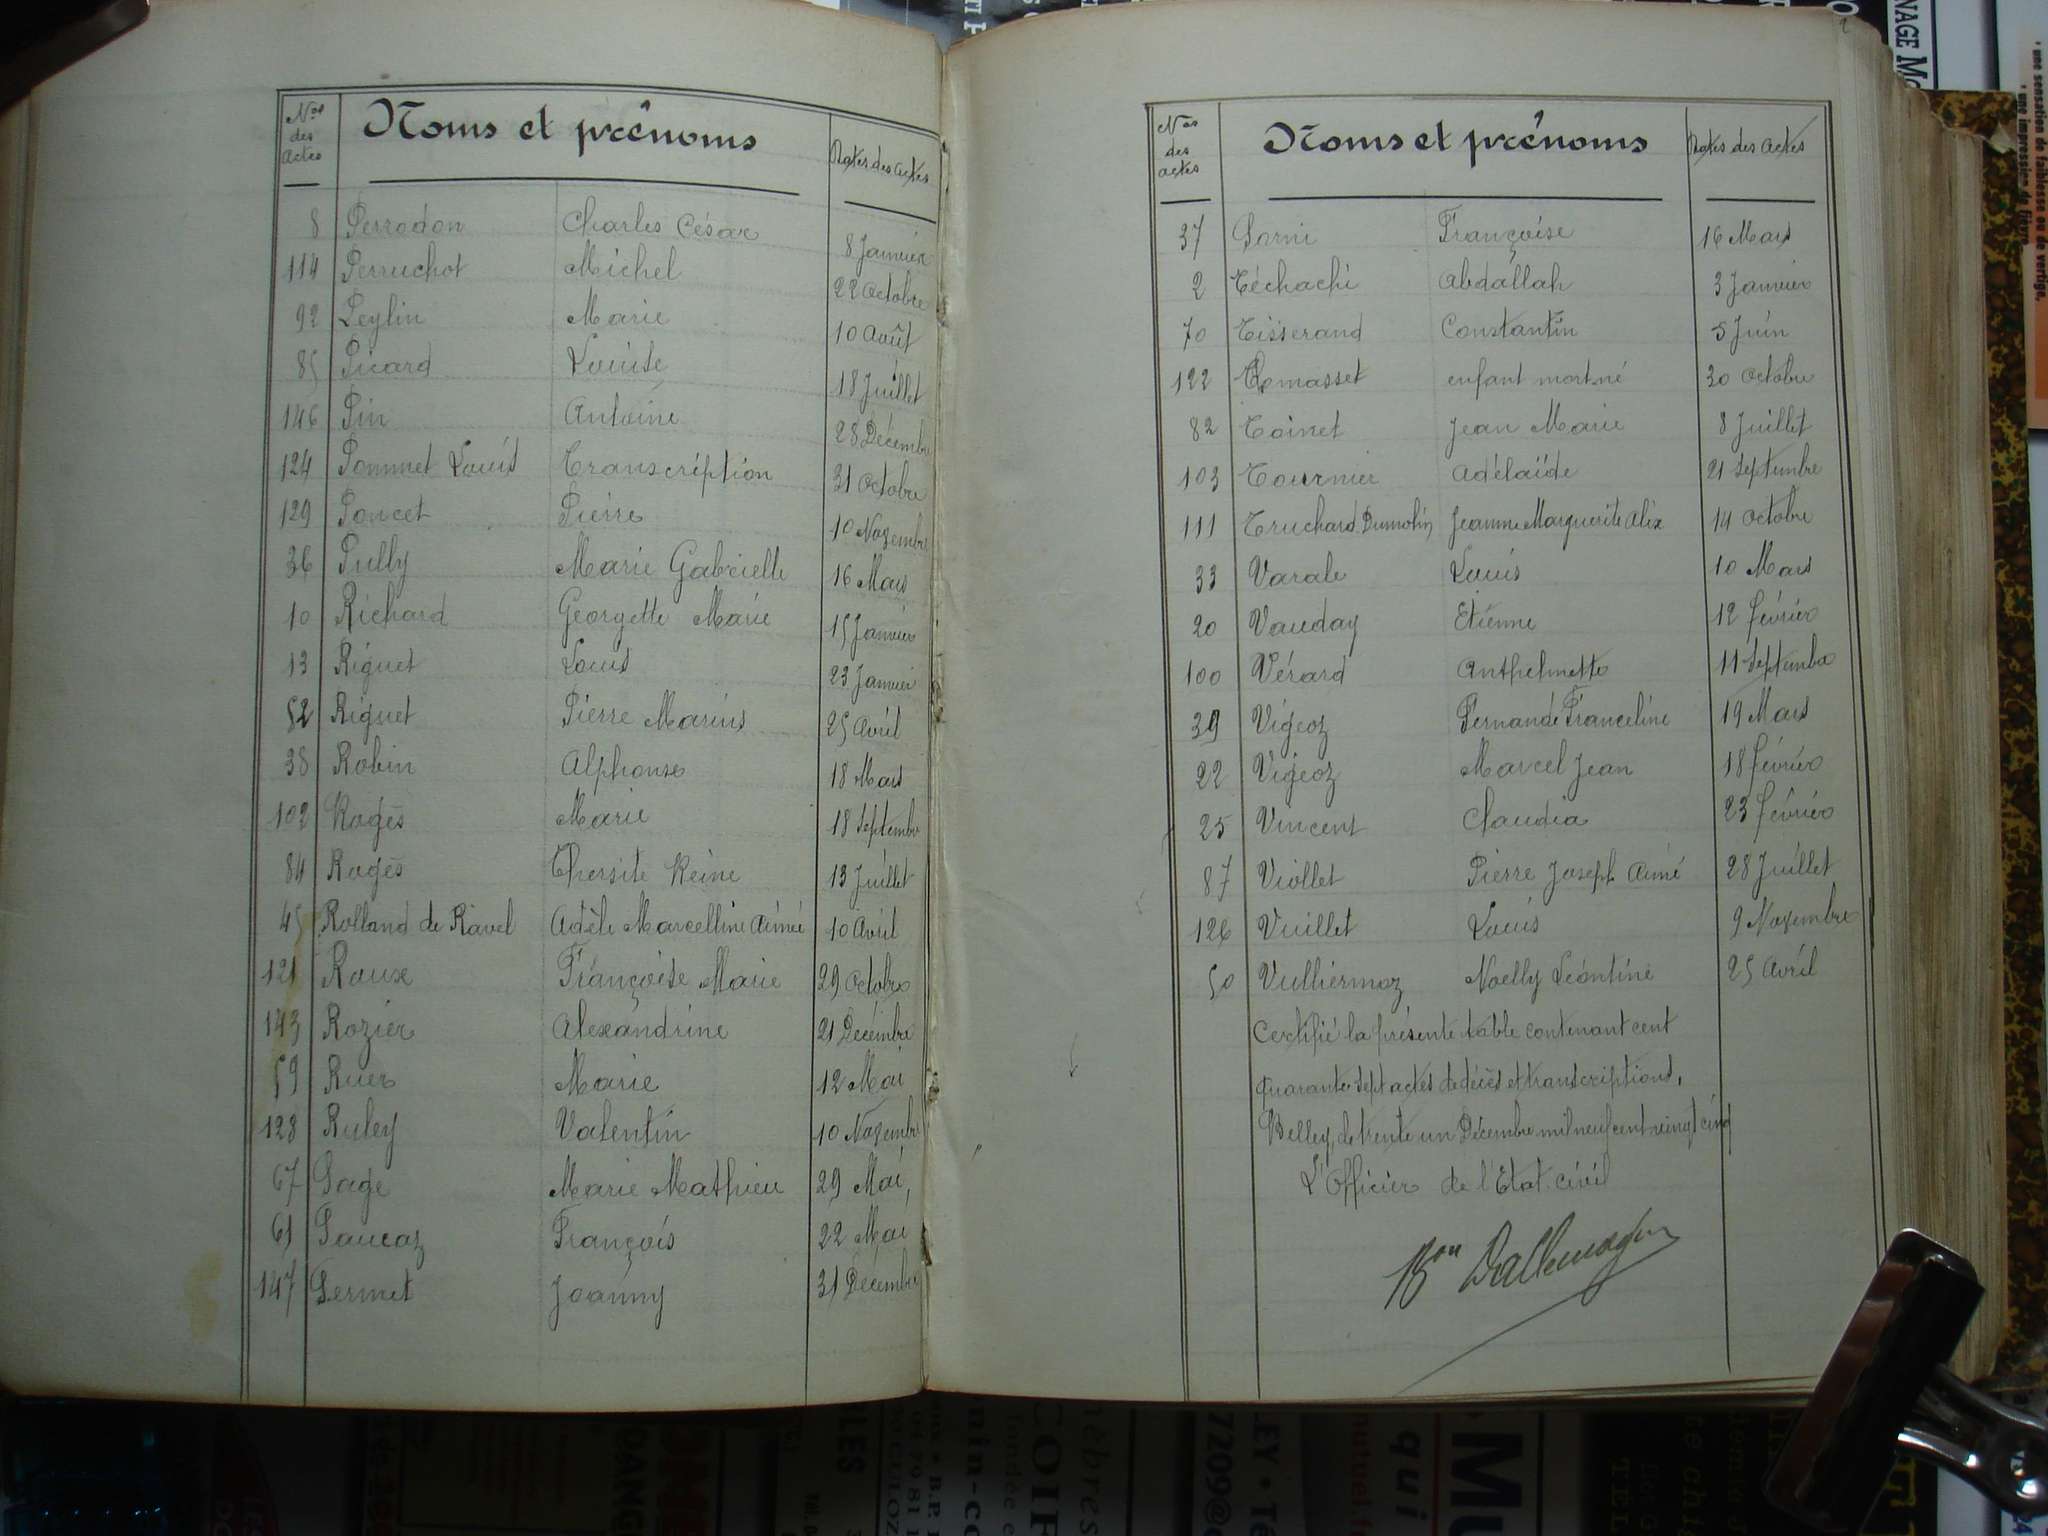 Nos des actes Noms et prénoms Dates des actes
8 Perrodon Charles César 8 Janvier
114 Perruchot Michel 22 Octobre
92 Peylin Marie 10 Août
85 Picard Louise 18 Juillet
146 Pin Antoine 28 Décembre
124 Pommet Louis Transcription 31 Octobre
129 Poncet Pierre 10 Novembre
36 Pully Marie Gabrielle 16 Mars
10 Richard Georgette Marie 15 Janvier
13 Riguet Louis 23 Janvier
52 Riguet Pierre Marius 25 Avril
38 Robin Alphonse 18 Mars
102 Rogès Marie 18 Septembre
84 Rogès Thersite Reine 13 Juillet
45 Rolland de Ravel Adèle Marcelline Aimée 10 Avril
121 Roux Françoise Marie 29 Octobre
143 Rozier Alexandrine 21 Décembre
59 Ruer Marie 12 Mai
128 Ruley Valentin 10 Novembre
67 Sage Marie Mathieu 29 Mai
61 Saucaz François 22 Mai
147 Sermet Joanny 31 Décembre
Nos des actes Noms et prénoms Dates des actes
37 Sorni Françoise 16 Mars
2 Téchachi Abdallah 3 Janvier
70 Tisserand Constantin 5 Juin
122 Thomasset enfant mort-né 30 Octobre
82 Toinet Jean Marie 8 Juillet
103 Tournier Adélaïde 21 Septembre
111 Truchard Dumolin Jeanne Marguerite Alix 14 Octobre
33 Varale Louis 10 Mars
20 Vauday Etienne 12 février
100 Vérard Anthelmette 11 Septembre
39 Vigeoz Fernande Franceline 19 Mars
22 Vigeoz Marcel Jean 18 février
25 Vincent Claudia 23 février
87 Viollet Pierre Joseph Aimé 28 Juillet
126 Vuillet Louis 9 Novembre
50 Vulliermoz Noelly Léontine 25 Avril
Certifié la présente table contenant cent
quarante sept actes de décès et transcriptions,
Belley, le trente un Décembre mil neuf cent vingt cinq
L'Officier de l'Etat civil
Bon Dallemagne